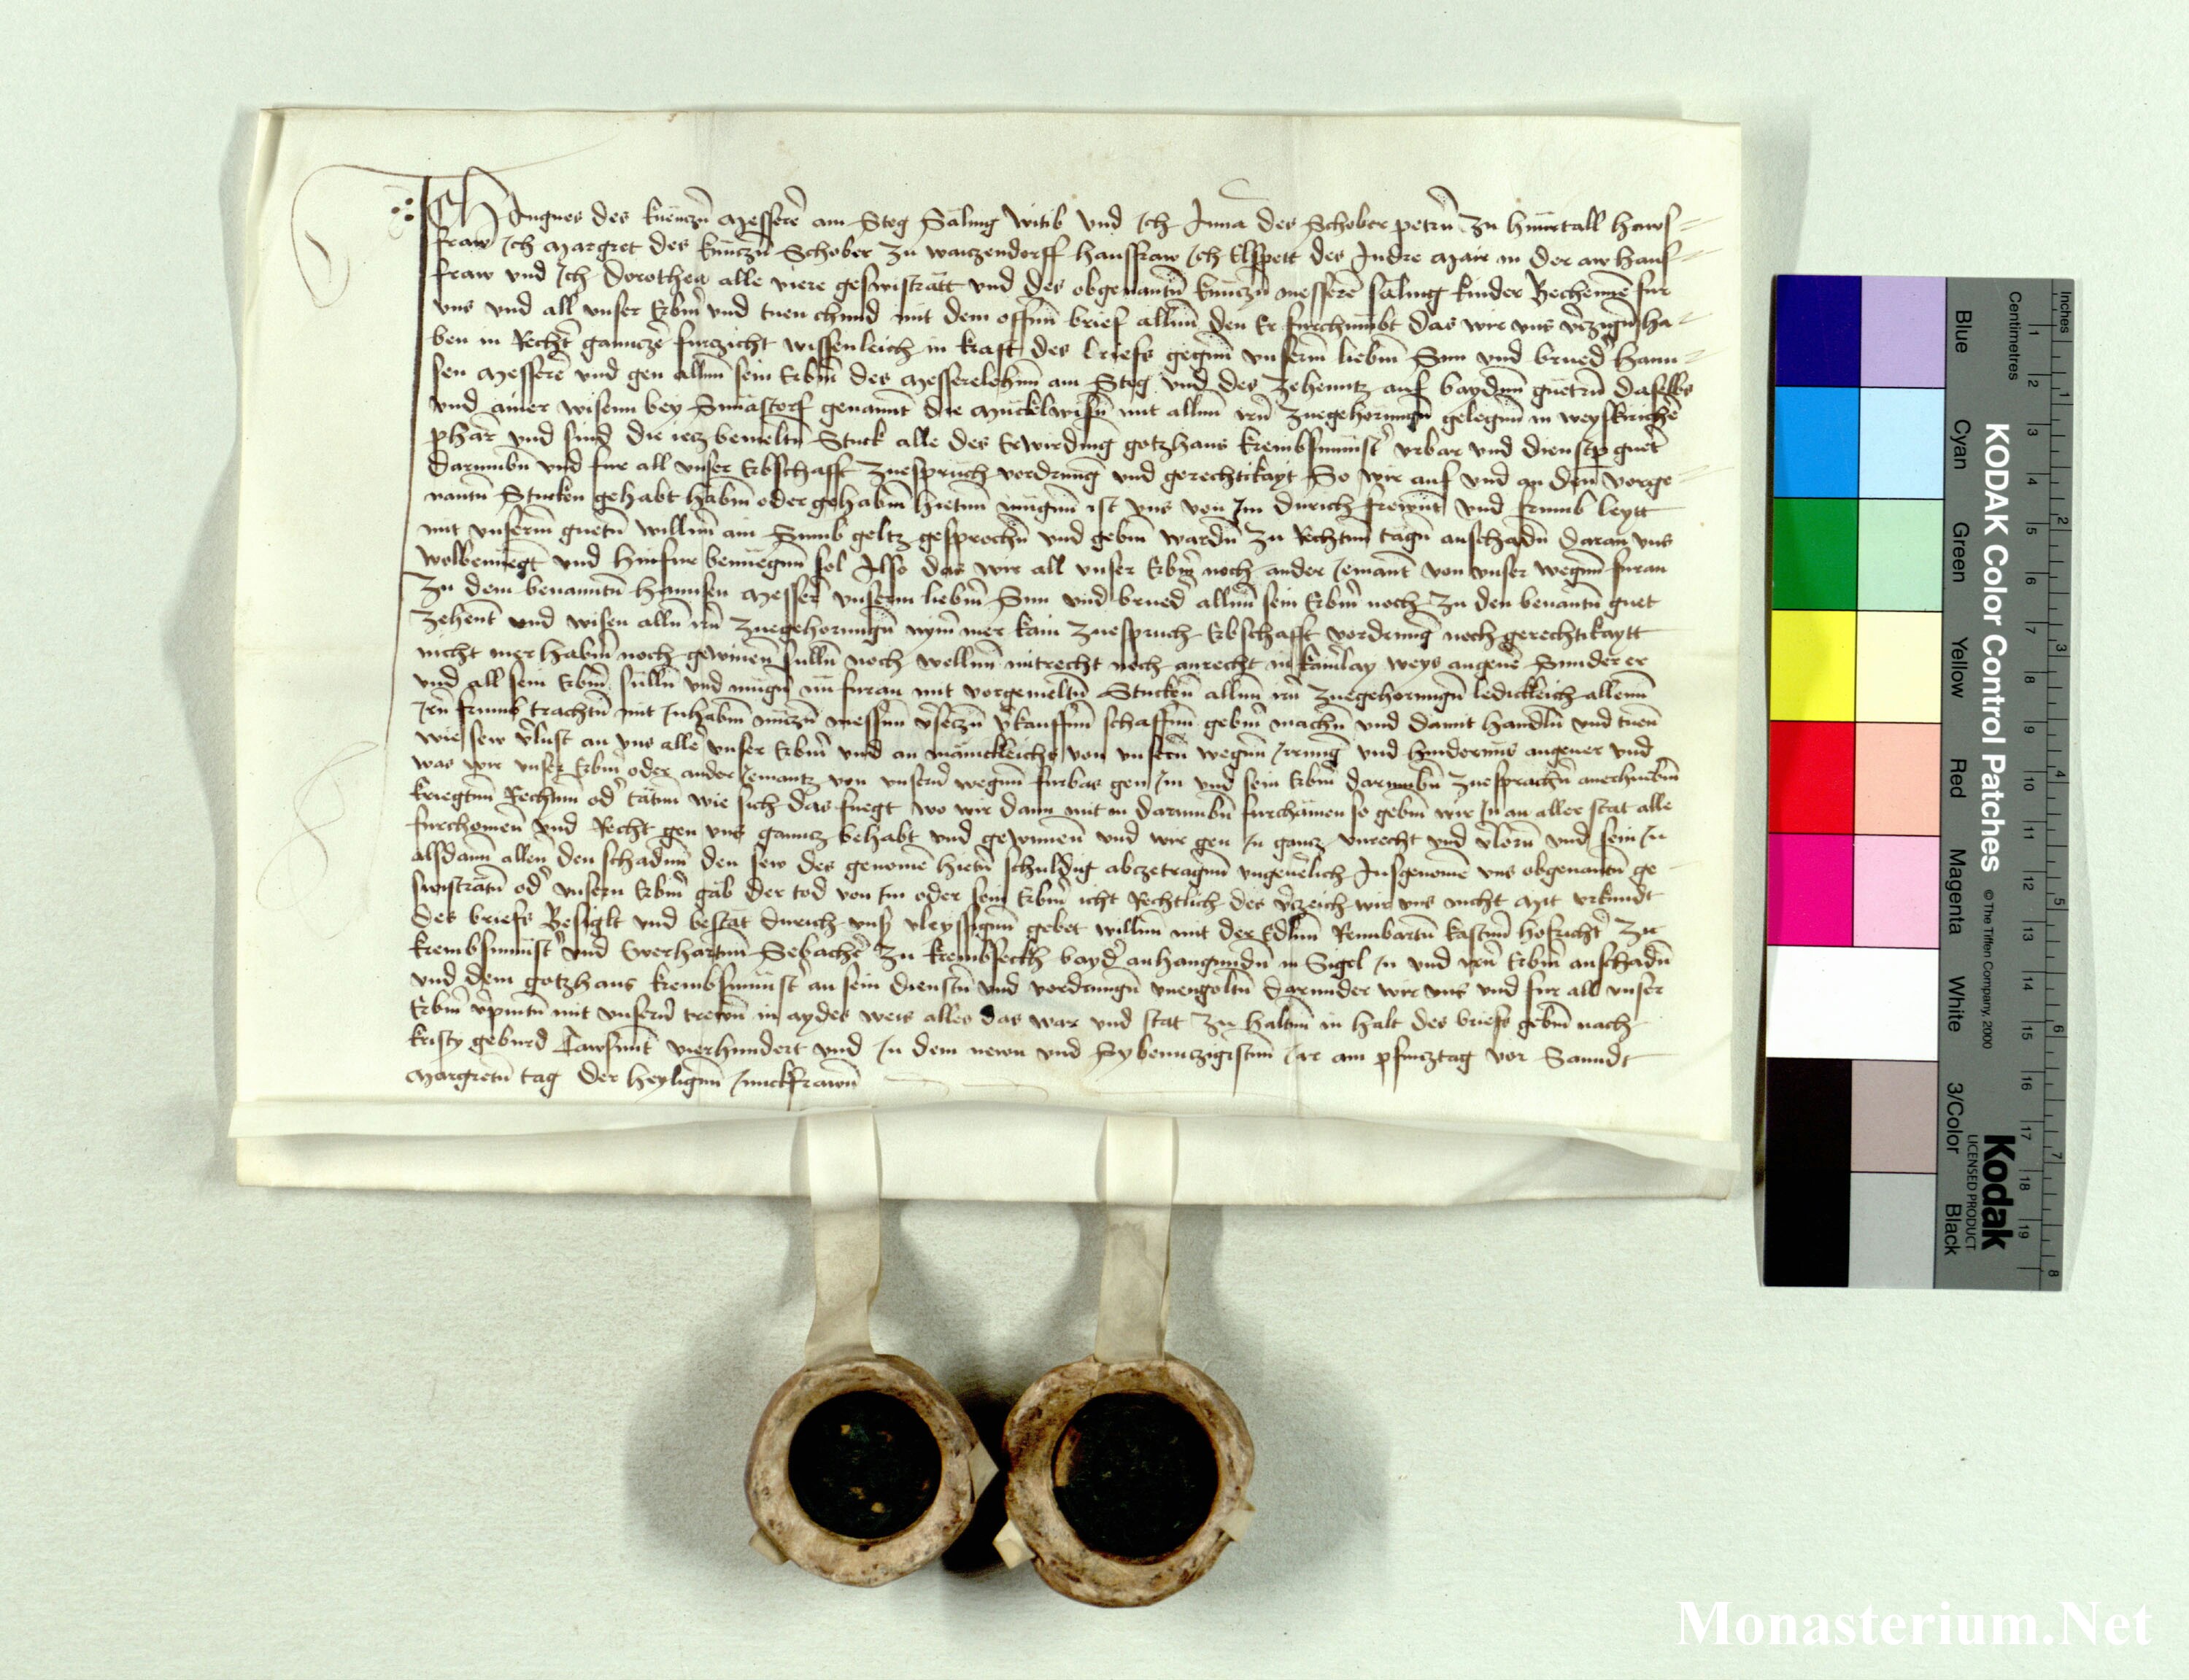 Ich Angnes des kuenczn Messere am Steg Säling witib und ich Anna des Schober petern zu hinrtall haws-
fraw ich Margret des kunczn Schober zu waczendorff hausfraw ich Elspett des Andre Mair in der aw hauſ-
fraw und ich Dorothea alle viere geswisträtt und des obgenantn kunczn messere säling kinder Bechenne fur
uns und all unser Erbm und tuen chund mit dem offnn brief allnn den Er furchumbt das wir uns vczign ha-
ben in Recht ganncze furczicht wissenleich in kraft des briefs gegnn unserm liebm Sun und brued hann-
sen Messere und gen allnn sein Erbm des Messerelehnn am Steg und des zehenntz auf baydnn guetrn daselbs
und ainer wisenn bey Smästorf genannt die Mücklwisn mit allnn irn zuegehörungn gelegnn in weyskirche
phar und sind die iecz bemeltn Stuck alle des Erwirding gotzhaus krembsmunst urbar und dienstp guet
darumbn und fur all unser Erbschafft zuespruch vordrung und gerechtikayt So wir auf und an den vorge-
nantn Stucken gehabt habm oder gehabm hietnn mügnn ist uns von Im durich frewnt und frumb leytt
mit unserm guetn willnn ain Sumb geltz gesprochn und gebm wardn zu Rechtnn tagn anschadn daran uns
wolbenuegt und hinfur benuegnn sol Also das wir all unser Erbm noch ander iemant von unser wegnn furan
zu dem benanntn hannsen Messer unserm liebm Sun und brued allnn sein Erbm noch zu den benantn guet
zehent und wisen alln irn zuegehorungn nymmer kain zuespruch Erbschafft vordrung noch gerechtikaytt
nicht mer habm noch gewinen sulln noch wellnn mitrecht noch anrecht in kainlay weys angeue Sunder er
und all sein Erbm sulln und mugn nu furan mit vorgemeltn Stucken allnn irn zuegehorungn ledickleich allenn
irn frumb trachtn mit Innhabm nuczn messnn vseczn vkauffnn schaffnn gebm machn und damit handln und tuen
wie sew vlust an uns alle unser Erbm und an mänickleichs von unsern wegnn irrung und hindernüs angeuer und
was wir unser Erbm oder ander iemantz von unsern wegnn furbas gen im und sein Erbm darumbn zuesprachn
kriegtnn Rechtnn od tätnn wie sich das fuegt wo wir dann mit in darumbn furchämen so gebm wir in an aller stat alle
furchomen und Recht gen uns ganncz behabt und gewunen und wir gen in gancz unrecht und vlorn und sein in
alsdann allen den schadnn den sew des genome hietn schuldig abczetragnn ungeuelich Ausgenome uns obgenantn ge
swisträtn od unsern Erbm gäb der tod von im oder sein Erbm icht Rechtlich des vczeich wir uns nicht Mit urkundt
des briefs Besiglt und bestät durich uns vleyssignn gebet willnn mit der Edlnn Reinbartn kastnn hofricht zu
krembsmünst und Everhartnn Sebache zu krembseckh bayd anhangundn in Sigel in und irn Erbm anschadn
und dem gotzhaus krembsmünst an sein dienstn und vordrungn unengoltn darunder wir uns und fur all unser
Erbm vpintn mit unsern trewn in aydes weis alles das war und stat zu haltnn in halt des briefs gebm nach
kristy geburd Tawsnnt vierhundert und in dem newn und Sybenntzigistnn iar am pfincztag vor Sanndt
Margretn tag der heylignn iunckfrawn
KODAK Color Control Patches
© The Tiffen Company, 2000
Kodak
LICENSED PRODUCT
Blue Cyan Green Yellow Red Magenta White 3/Color Black
Inches 1 2 3 4 5 6 7 8
Centimetres 1 2 3 4 5 6 7 8 9 10 11 12 13 14 15 16 17 18 19
Monasterium.Net